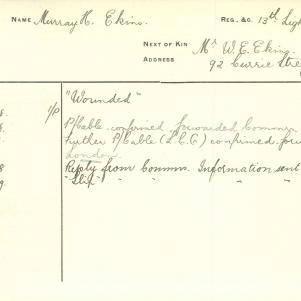 NAME Murray H. Ekins. REG. &C. 13th Lig
NEXT OF KIN Mr W. E. Ekins
ADDRESS 92 Currie Stre
"Wounded"
8. 1/P P/Cable confirmed forwarded Commn
Further P/Cable (L.C.C) confirmed for
London
8 Reply from Comm. Information sent
9 "Slip" " " "